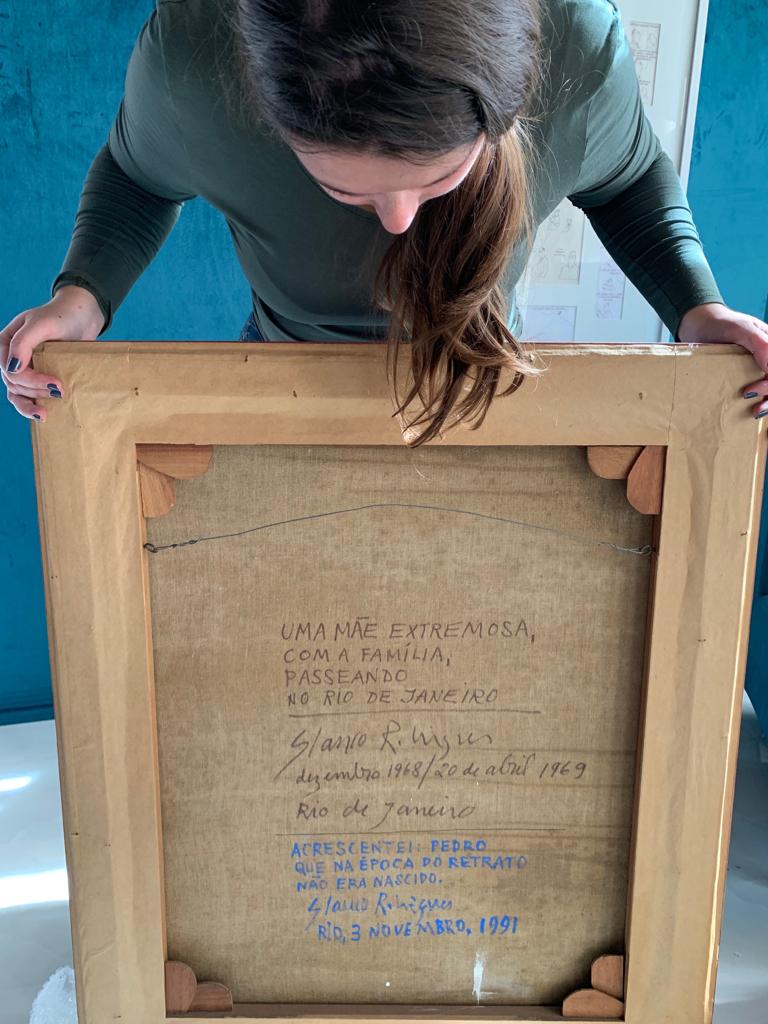 UMA MÃE EXTREMOSA,
COM A FAMÍLIA,
PASSEANDO
NO RIO DE JANEIRO
Glauco Rodrigues
dezembro 1968/20 de abril 1969
Rio de Janeiro
ACRESCENTEI: PEDRO
QUE NA ÉPOCA DO RETRATO
NÃO ERA NASCIDO.
Glauco Rodrigues
RIO, 3 NOVEMBRO, 1991